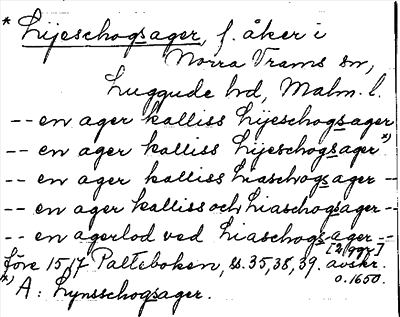 * Lijeschogsager, f. åker i
Norra Vrams sn,
Luggude hd, Malm. l.
-- en ager kalliss Lijeschogsager
-- en ager kalliss Lijeschogsager *)
-- en ager kalliss Liaschogsager --
-- en ager kalliss och Liaschogsager --
-- en agerlod ved Liaschogsager --
[2 ggr]
före 1517 Palteboken, ss. 35, 38, 39. avskr.
o. 1650.
*) A: Lynsschogsager.